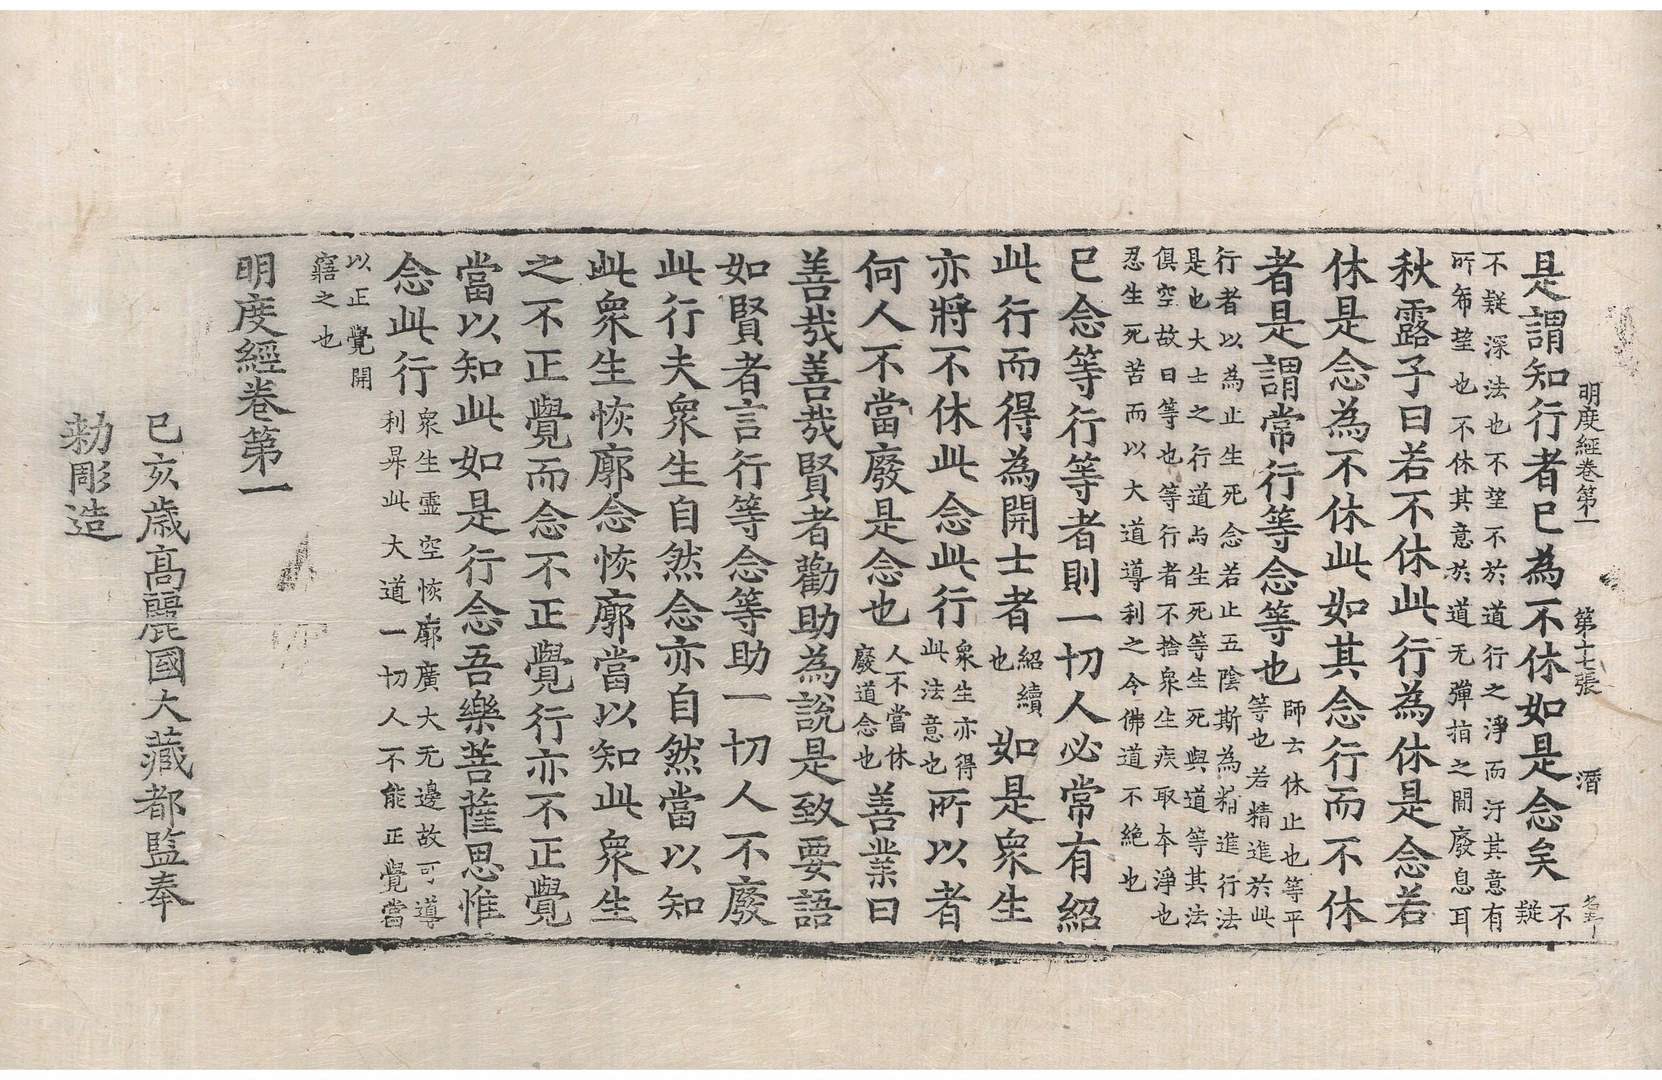 明度經卷第一 第十七張 潛
是謂知行者已為不休如是念矣不
疑
不疑深法也不望不於道行之淨而汙其意有
所希望也不休其意於道无彈指之間廢息耳
秋露子曰若不休此行為休是念若
休是念為不休此如其念行而不休
者是謂常行等念等也師云休止也等平
等也若精進於此
行者以為止生死念若止五陰斯為精進行法
是也大士之行道与生死等生死與道等其法
俱空故曰等也等行者不捨衆生疾取本淨也
忍生死苦而以大道導利之今佛道不絕也
已念等行等者則一切人必常有紹
此行而得為開士者紹續
也如是衆生
亦將不休此念此行衆生亦得
此法意也所以者
何人不當廢是念也人不當休
廢道念也善業曰
善哉善哉賢者勸助為說是致要語
如賢者言行等念等助一切人不廢
此行夫衆生自然念亦自然當以知
此衆生恢廓念恢廓當以知此衆生
之不正覺而念不正覺行亦不正覺
當以知此如是行念吾樂菩薩思惟
念此行衆生靈空恢廓廣大无邊故可導
利昇此大道一切人不能正覺當
以正覺開
寤之也
明度經卷第一
己亥歲高麗國大藏都監奉
勅彫造